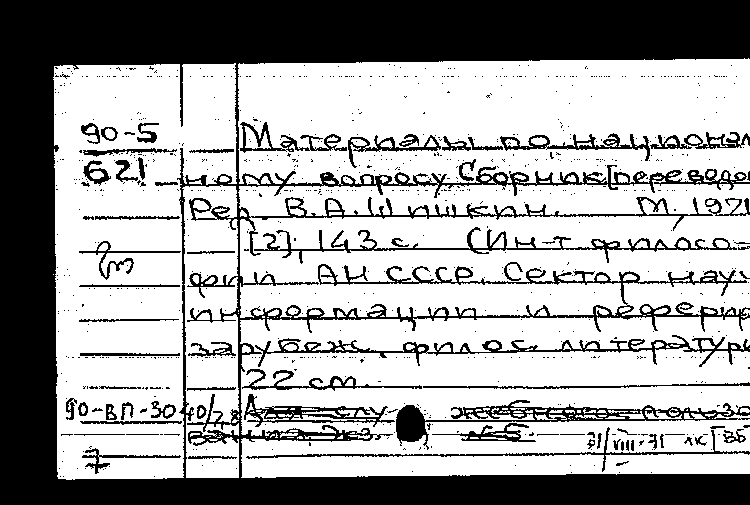 90-5 Материалы по национал
621 ному вопросу Сборник [переведо
Ред. В.А. Шишкин. М., 1971
[2], 143 с. (Ин-т филосо-
фии АН СССР. Сектор науч
информации и рефериро
зарубеж. филос. литературы
22 см.
90-ВП-30 40/28 Для слу жебного пользо
вания, Экз. №6.
7 31/VIII-71 лк [ВБ